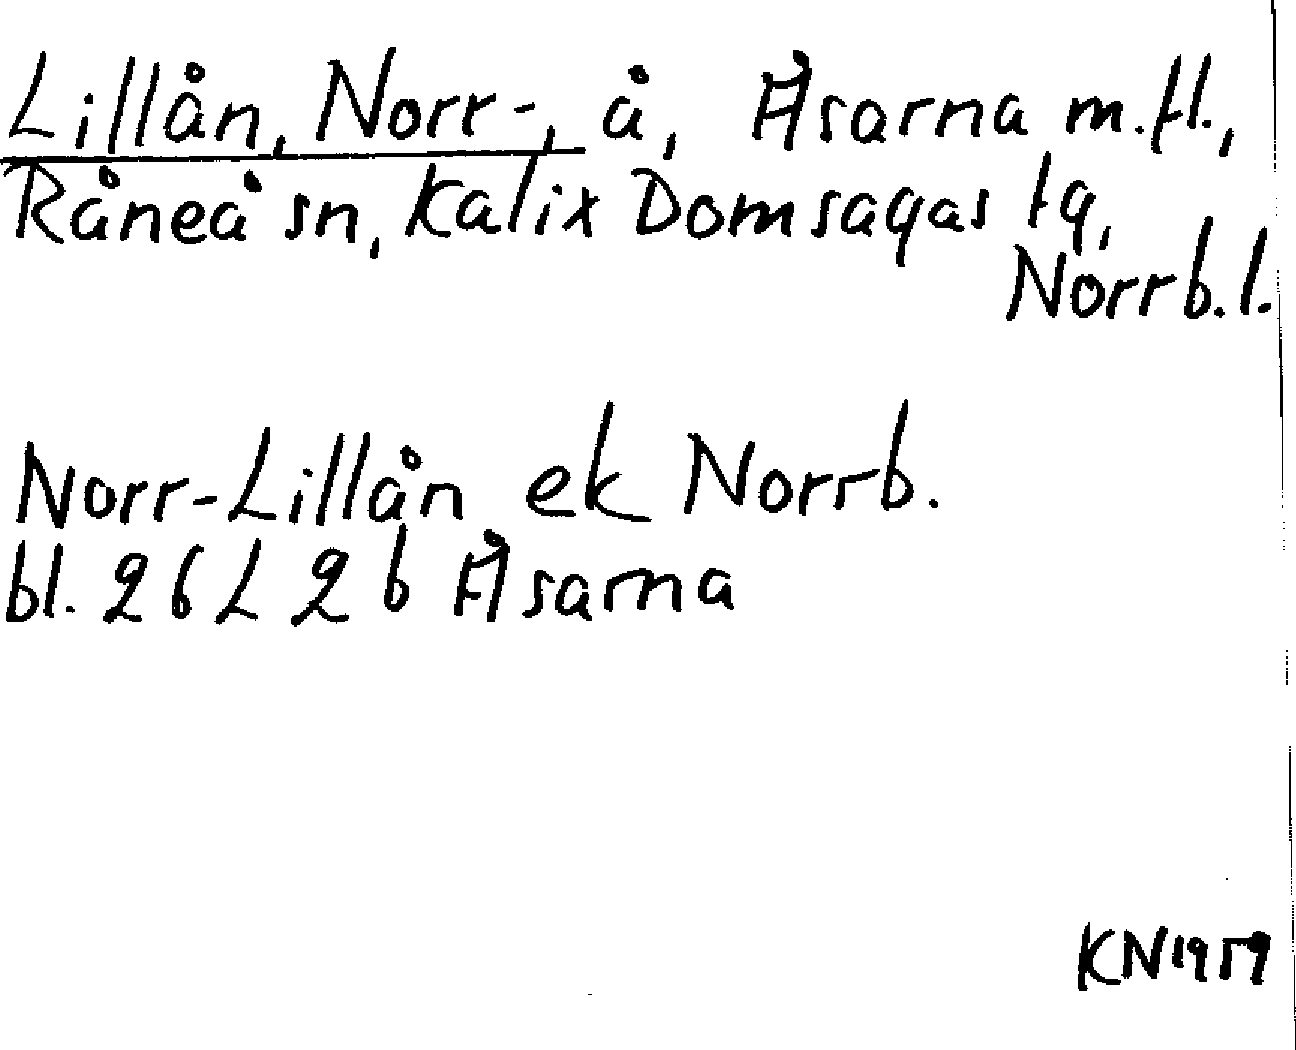 Lillån, Norr-, å, Åsarna m.fl.,
Råneå sn, Kalix Domsagas tg,
Norrb.l.
Norr-Lillån ek Norrb.
bl. 26 L 2 b Åsarna
KN 1959